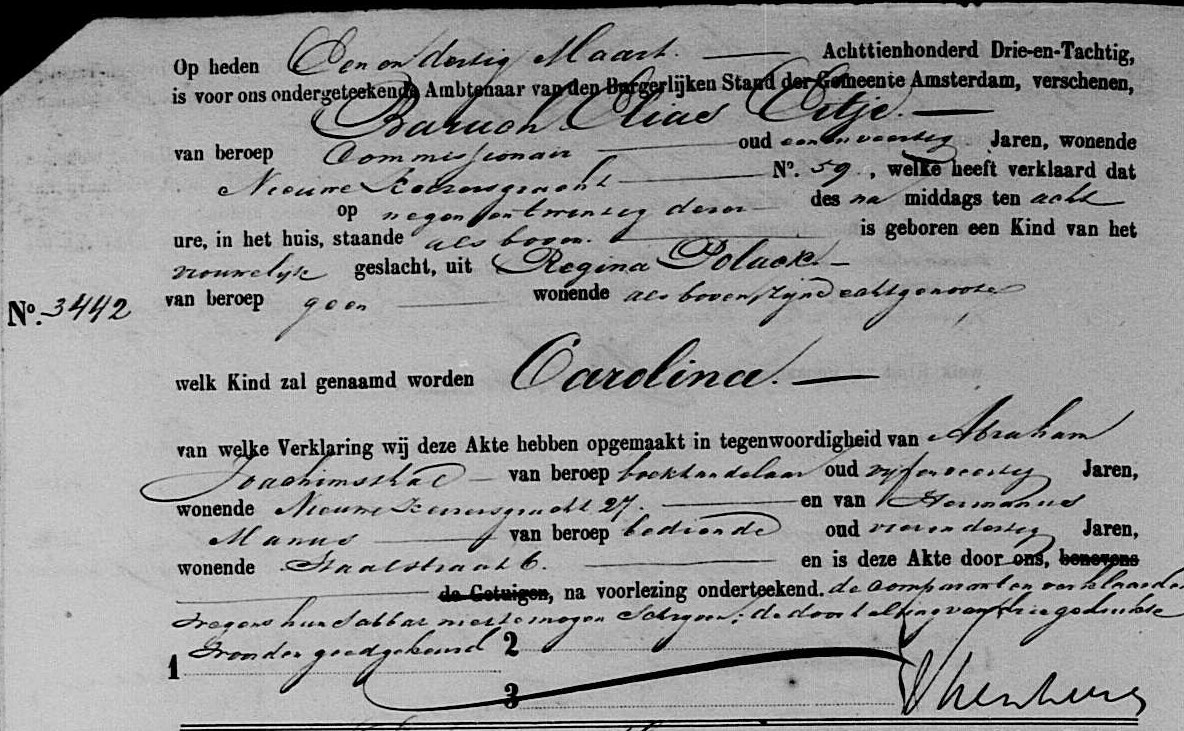 Op heden Een en dertig Maart. Achttienhonderd Drie-en-Tachtig,
is voor ons ondergeteekende Ambtenaar van den Burgerlijken Stand der Gemeente Amsterdam, verschenen,
Baruch Elias Eitje.
van beroep Commissionair oud een en veertig Jaren, wonende
Nieuwe Keizersgracht No. 59, welke heeft verklaard dat
op negen en twintig dezer des na middags ten acht
ure, in het huis, staande als boven. is geboren een Kind van het
vrouwelijk geslacht, uit Regina Polack
No. 3442 van beroep geen wonende als boven, zijne echtgenoote
welk Kind zal genaamd worden Carolina.
van welke Verklaring wij deze Akte hebben opgemaakt in tegenwoordigheid van Abraham
Joachimsthal van beroep boekhandelaar oud vijf en veertig Jaren,
wonende Nieuwe Keizersgracht 27. en van Hermanus
Manus van beroep bediende oud vier en dertig Jaren,
wonende Staalstraat 6. en is deze Akte door ons, benevens
de Getuigen, na voorlezing onderteekend. de comparanten verklaarden
wegens hun Sabbat niet te mogen schrijven; de doorhaling van drie gedrukte
woorden goedgekeurd
1
2
3